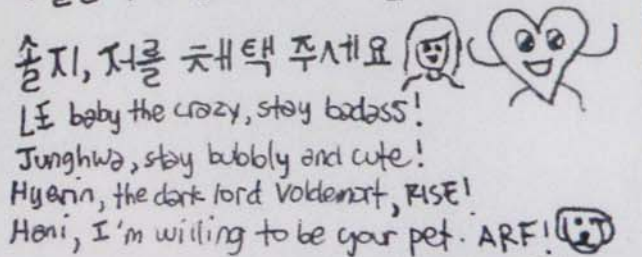 솔지, 저를 채택 주세요
LE baby the crazy, stay badass!
Junghwa, stay bubbly and cute!
Hyerin, the dark lord Voldemort, RISE!
Hani, I'm willing to be your pet. ARF!